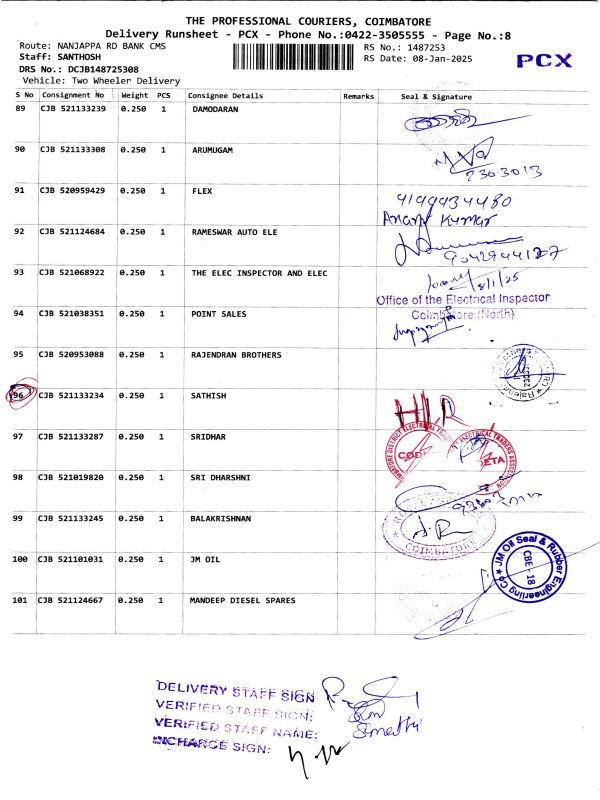 THE PROFESSIONAL COURIERS, COIMBATORE
Delivery Runsheet - PCX - Phone No.:0422-3505555 - Page No.:8
Route: NANJAPPA RD BANK CMS RS No.: 1487253
Staff: SANTHOSH RS Date: 08-Jan-2025
PCX
DRS No.: DCJB148725308
Vehicle: Two Wheeler Delivery
S No Consignment No Weight PCS Consignee Details Remarks Seal & Signature
89 CJB 521133239 0.250 1 DAMODARAN
90 CJB 521133308 0.250 1 ARUMUGAM
9303013
91 CJB 520959429 0.250 1 FLEX
Anany Kumar
92 CJB 521124684 0.250 1 RAMESWAR AUTO ELE
93 CJB 521068922 0.250 1 THE ELEC INSPECTOR AND ELEC
8/1/25
Office of the Electrical Inspector
Coimbatore (North)
94 CJB 521038351 0.250 1 POINT SALES
95 CJB 520953088 0.250 1 RAJENDRAN BROTHERS
96 CJB 521133234 0.250 1 SATHISH
97 CJB 521133287 0.250 1 SRIDHAR
98 CJB 521019820 0.250 1 SRI DHARSHNI
99 CJB 521133245 0.250 1 BALAKRISHNAN
COIMBATORE
100 CJB 521101031 0.250 1 JM OIL
JM Oil Seal & Rubber Engineering Co
CBE - 18
101 CJB 521124667 0.250 1 MANDEEP DIESEL SPARES
DELIVERY STAFF SIGN
VERIFIED STAFF SIGN:
VERIFIED STAFF NAME:
INCHARGE SIGN: